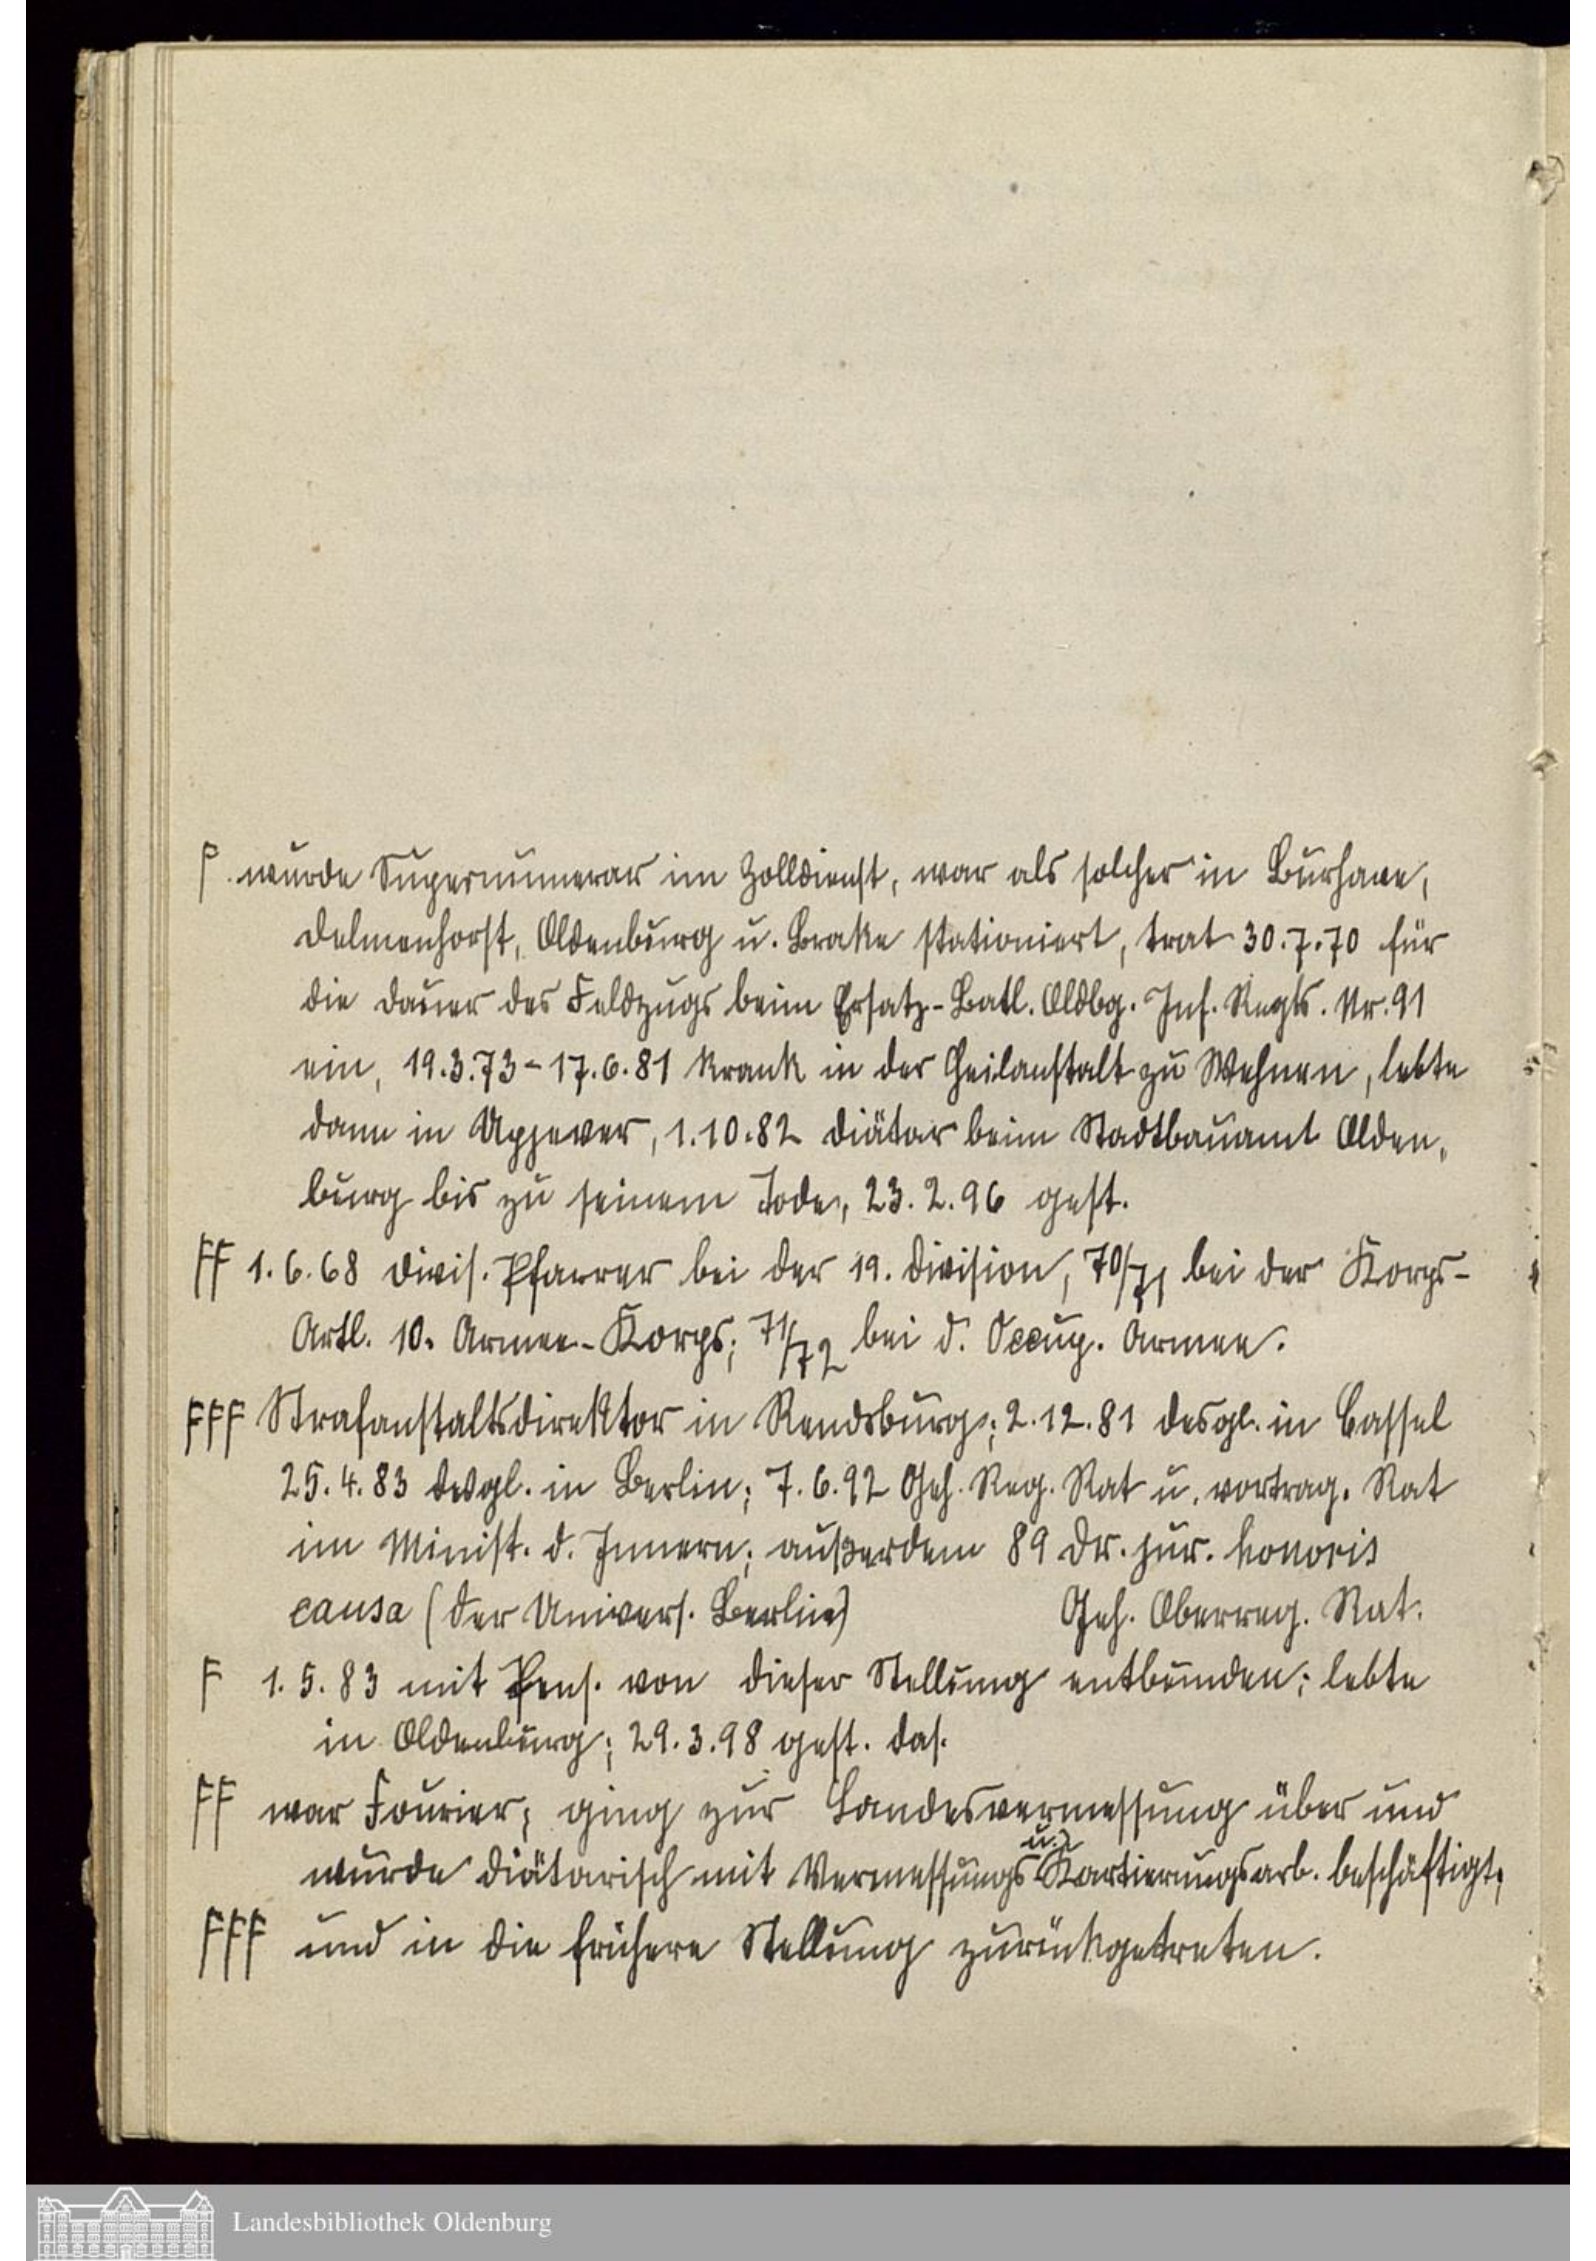 F wurde Supernumerar im Zolldienst, war als solcher in Burhave,
Delmenhorst, Oldenburg u. Brake stationiert, trat 30.7.70 für
die Dauer des Feldzugs beim Ersatz-Batl. Oldbg. Inf. Regts. Nr. 91
ein, 19.3.73 - 17.6.81 krank in der Heilanstalt zu Wehnen, lebte
dann in Upjever, 1.10.82 Diätar beim Stadtbauamt Olden„
burg bis zu seinem Tode, 23.2.96 gest.
FF 1.6.68 Divis. Pfarrer bei der 19. Division, 70/71 bei der Korps-
Artl. 10. Armee-Korps; 71/72 bei d. Occup. Armee.
FFF Strafanstaltsdirektor in Rendsburg; 2.12.81 desgl. in Cassel
25.4.83 desgl. in Berlin; 7.6.92 Geh. Reg. Rat u. vortrag. Rat
im Minist. d. Innern; außerdem 89 Dr. jur. honoris
causa (der Univers. Berlin) Geh. Oberreg. Rat.
F 1.5.83 mit Pens. von dieser Stellung entbunden; lebte
in Oldenburg; 29.3.98 gest. das.
FF war Fourier; ging zur Landesvermessung über und
wurde diätarisch mit Vermessungs u. Kartierungsarb. beschäftigt;
FFF und in die frühere Stellung zurückgetreten.
Landesbibliothek Oldenburg